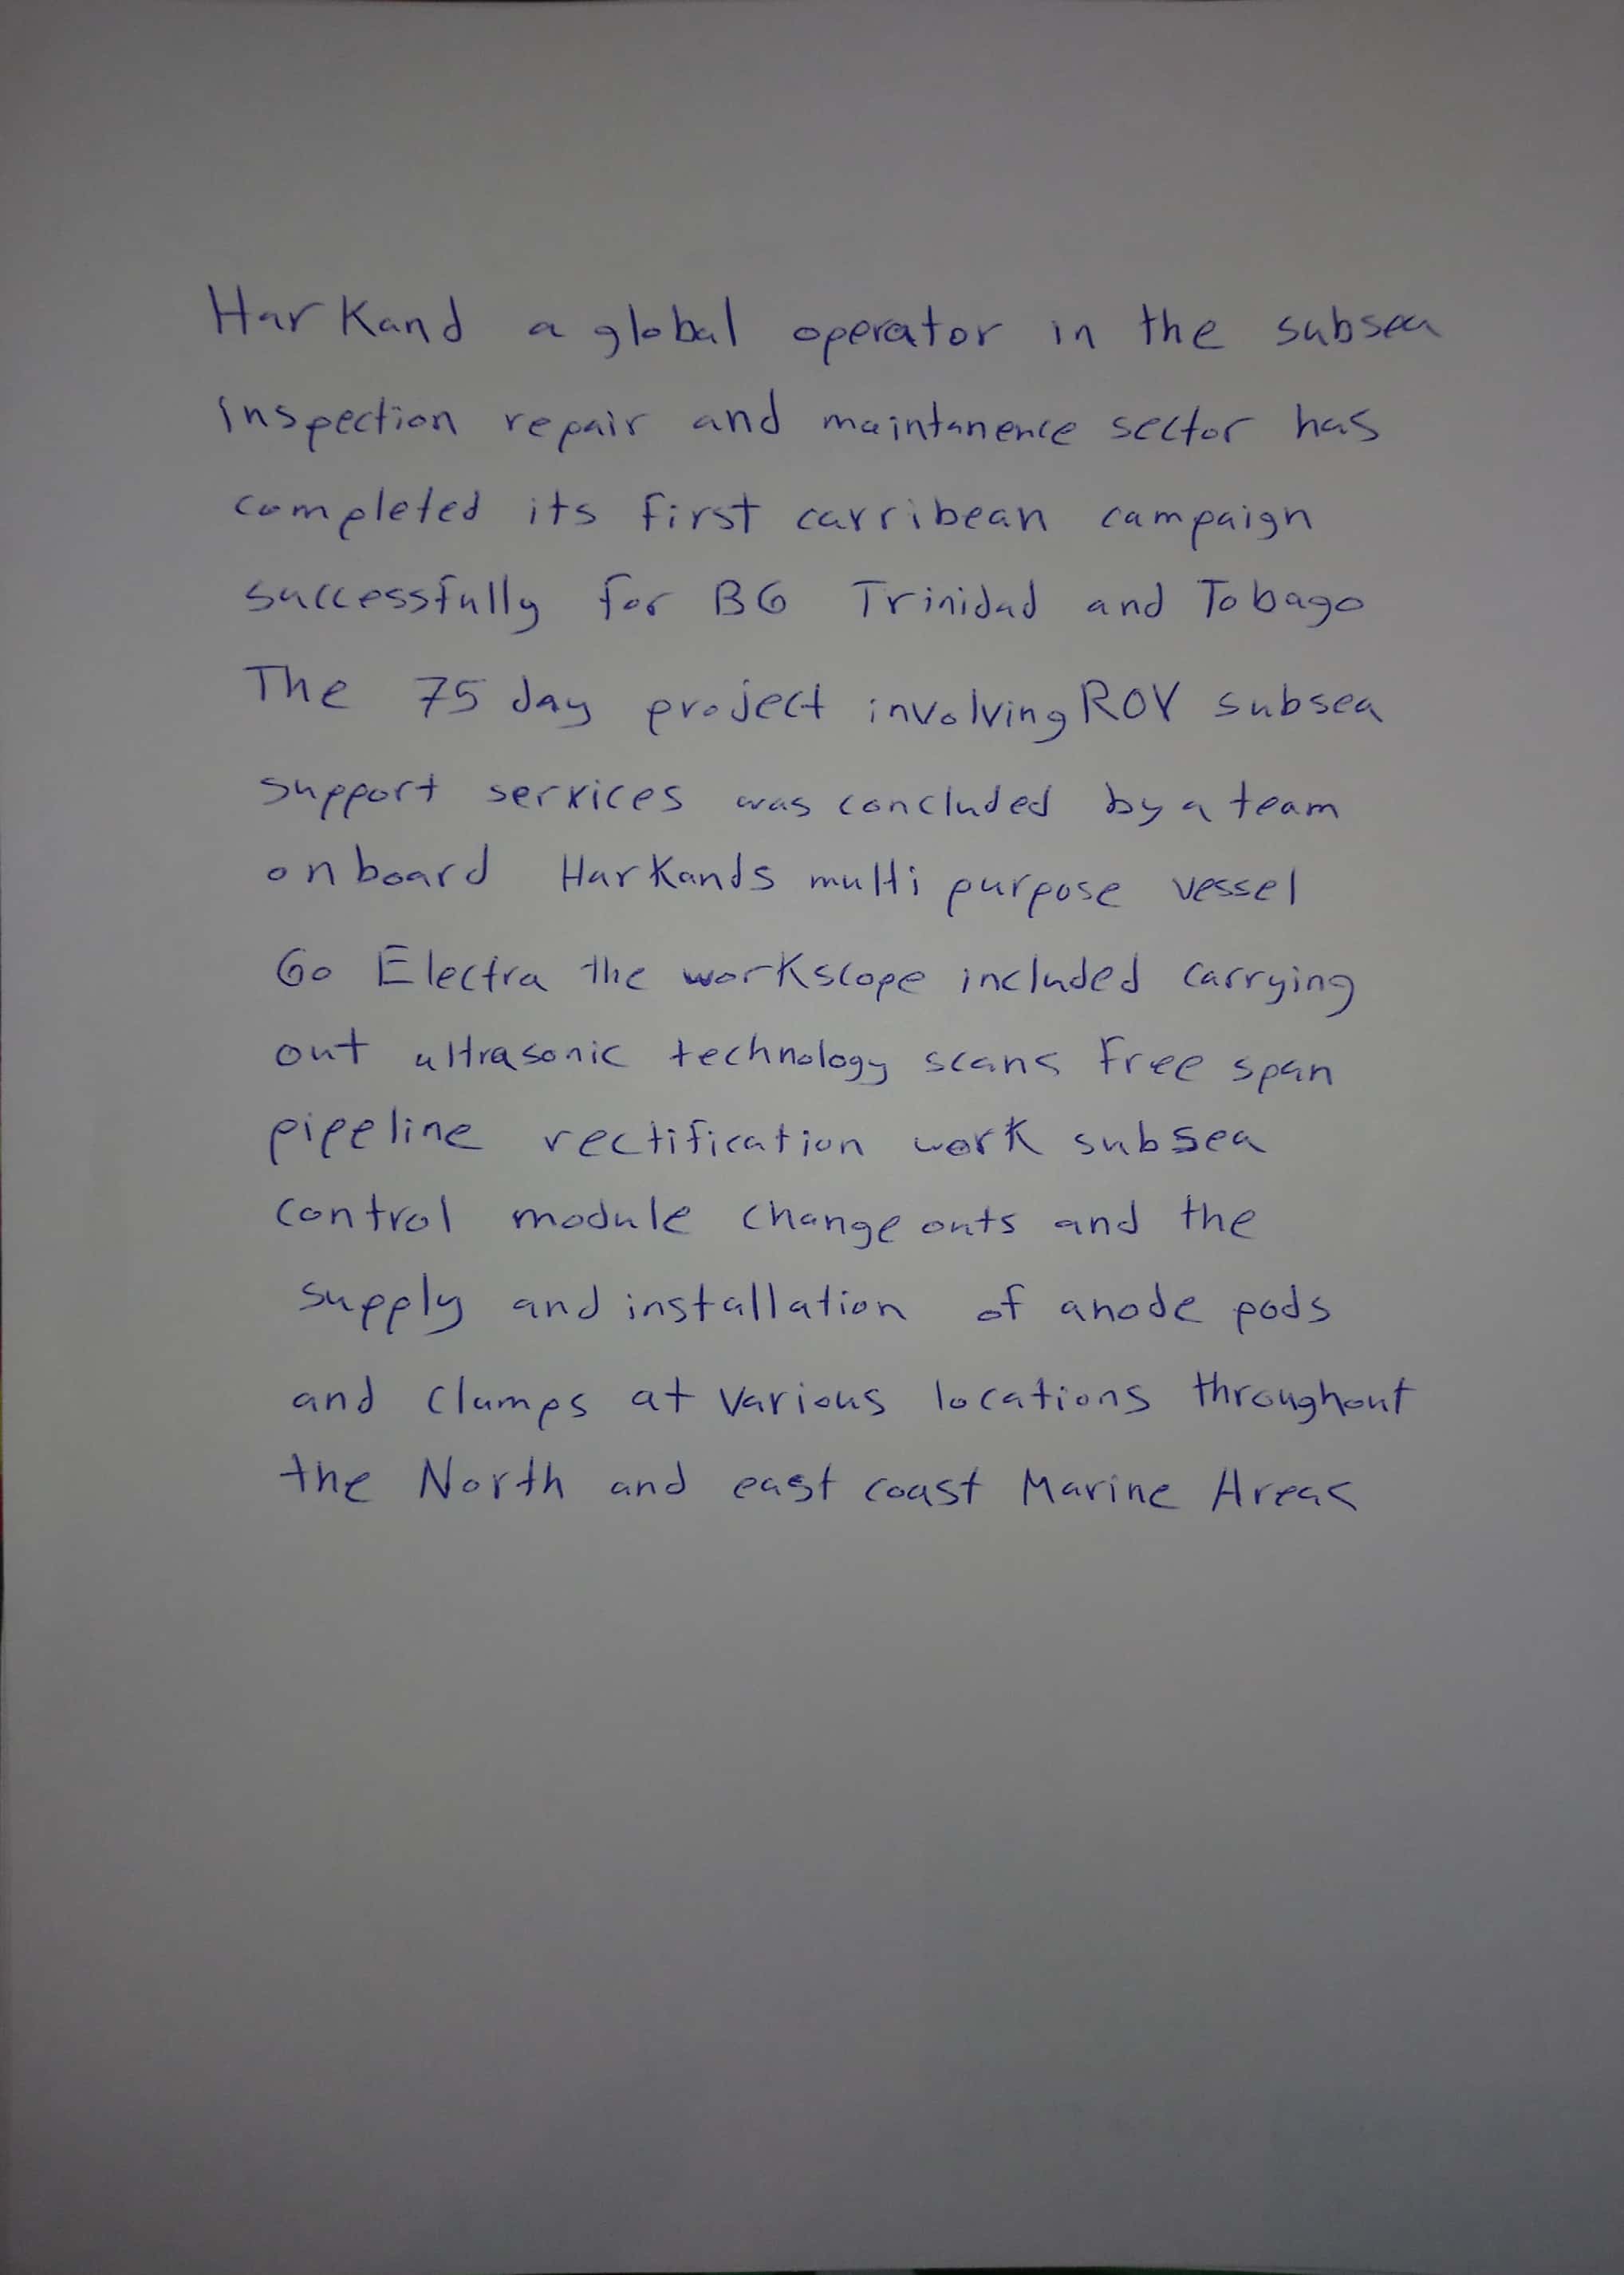 HarKand a global operator in the subsea
inspection repair and maintanence sector has
completed its first carribean campaign
successfully for BG Trinidad and Tobago
The 75 day project involving ROV subsea
support services was concluded by a team
onboard HarKands multi purpose vessel
Go Electra the workscope included carrying
out ultrasonic technology scans free span
pipeline rectification work subsea
control module change outs and the
supply and installation of anode pods
and clamps at various locations throughout
the North and east coast Marine Areas